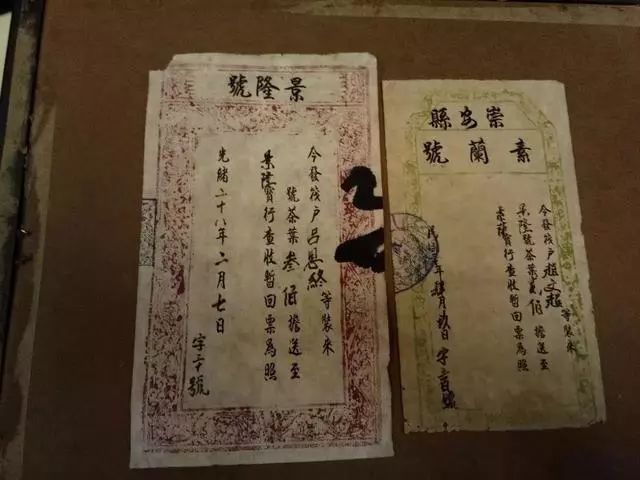 景隆號
今發筏戶呂恩終等裝來
號茶葉叁佰擔送至
景隆寶行查收暫回票為照
光緒二十八年二月七日
字二十號
崇安縣
素蘭號
今發筏戶趙文超等裝來
景隆號茶葉佰擔送至
寶行查收暫回票為照
民國年肆月玖日
字號